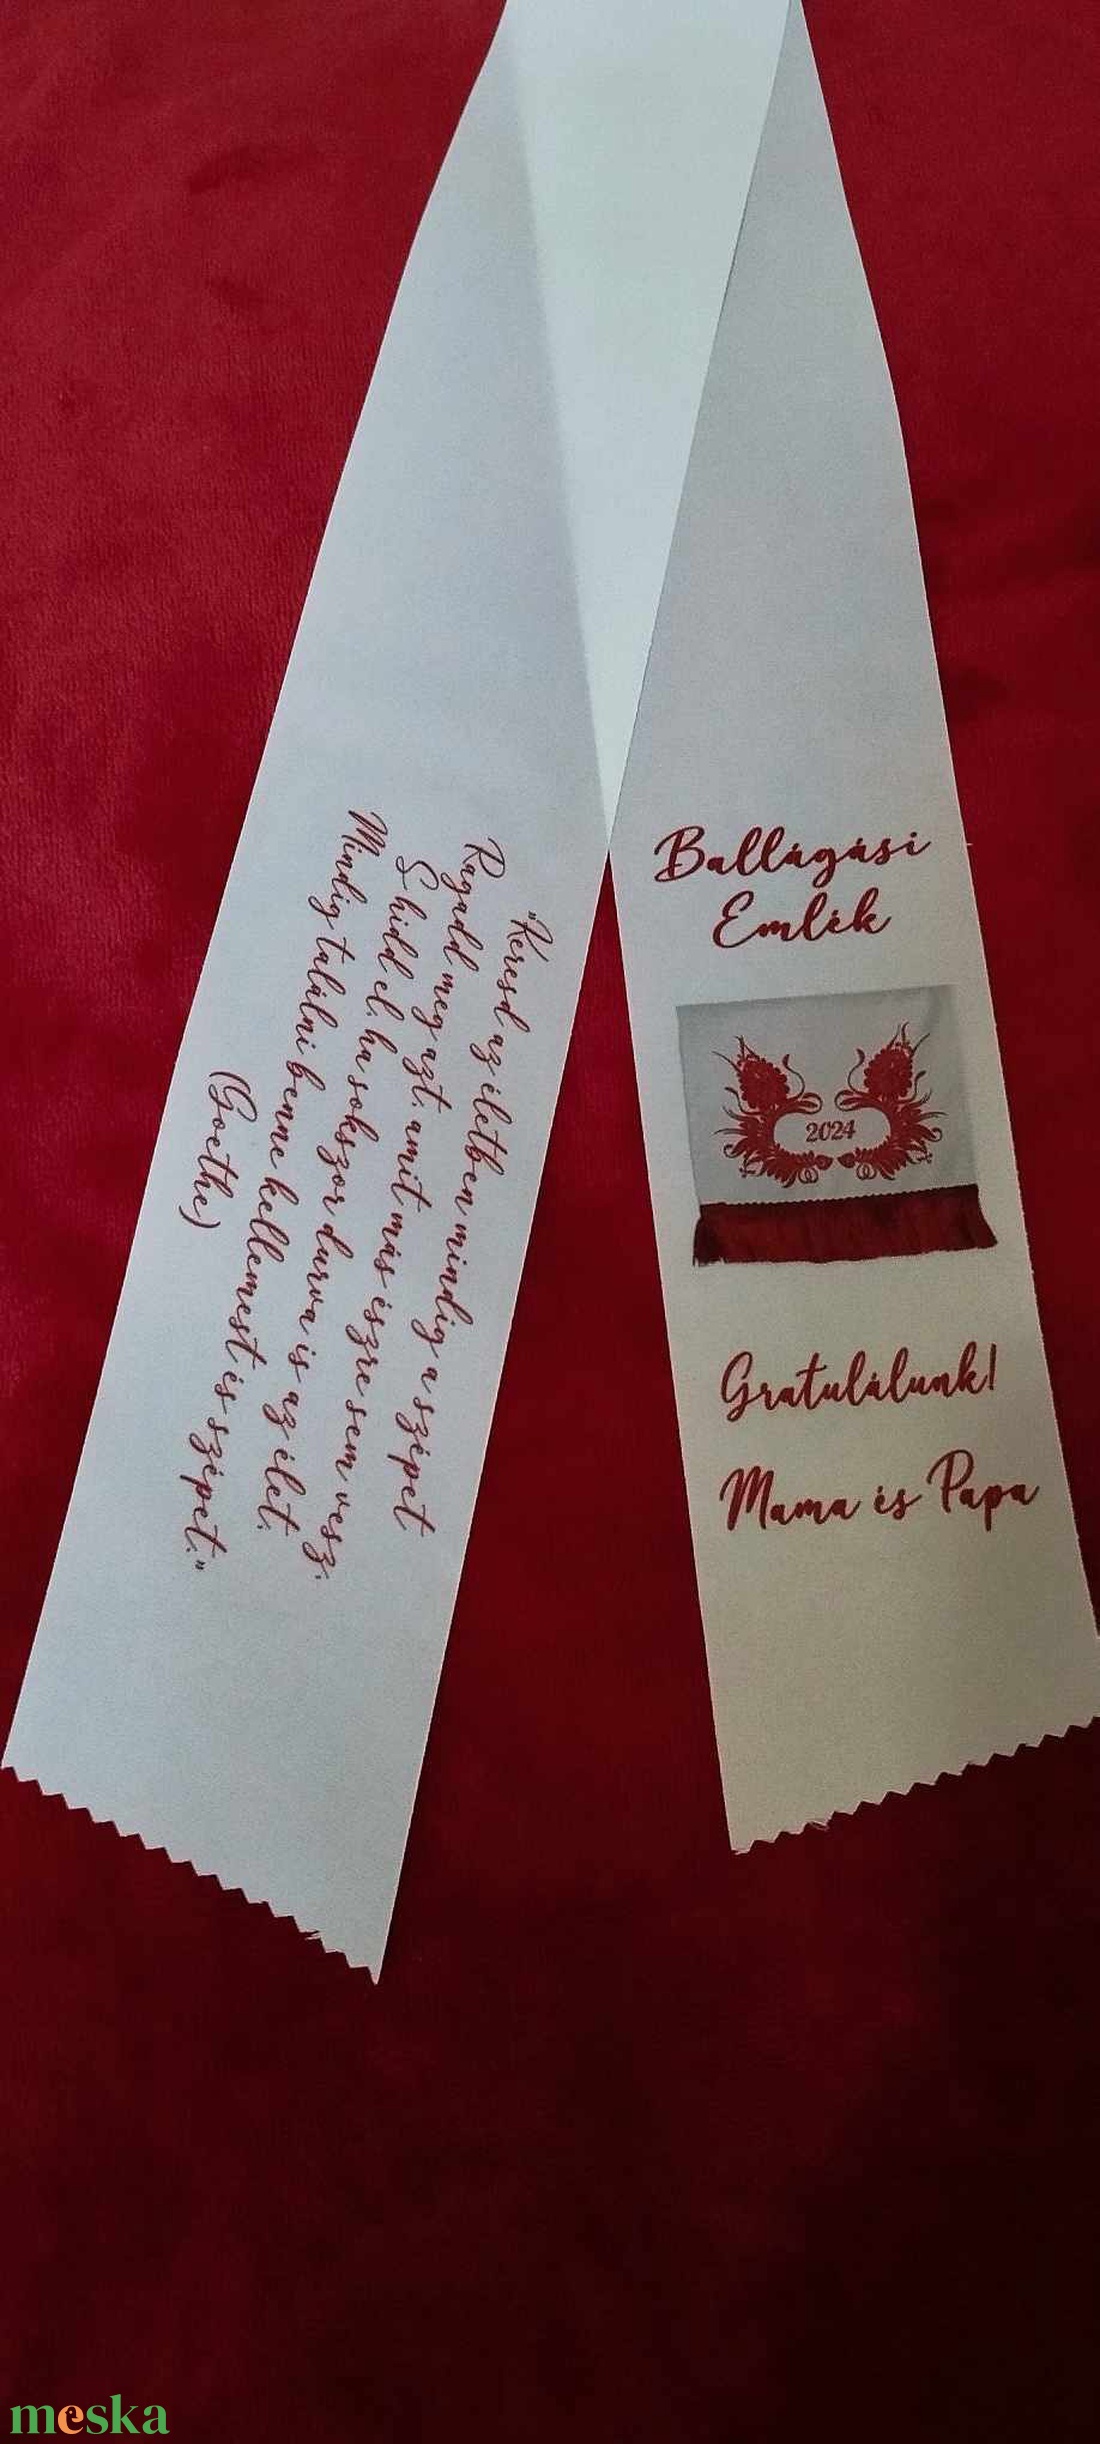 "Keresd az életben mindig a szépet
Ragadd meg azt, amit más észre sem vesz.
S hidd el, ha sokszor durva is az élet.
Mindig találni benne kellemest és szépet."
(Goethe)
Ballagási
Emlék
2024
Gratulálunk!
Mama és Papa
meska